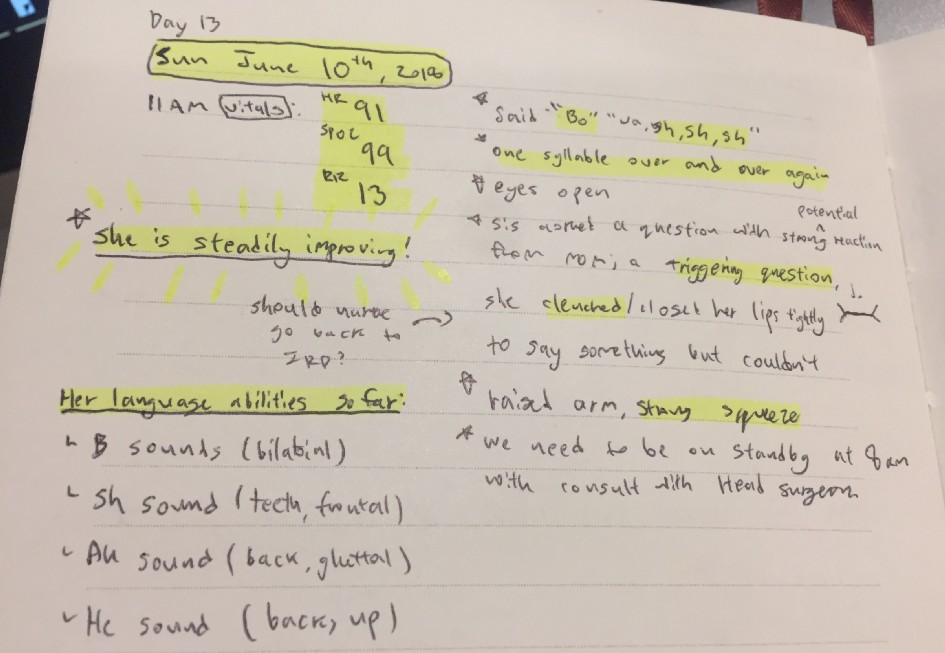 Day 13
Sun June 10th, 2018
11AM vitals:
HR 91
SPO2
99
RR
13
☆ She is steadily improving!
should nurse
go back to
Her language abilities so far:
↳ B sounds (bilabial)
↳ Sh sound (teeth, frontal)
↳ Ah sound (back, gluttal)
↳ He sound (back, up)
☆ Said "Bo" "va, sh, sh, sh"
* one syllable over and over again
☆ eyes open
☆ sis asked a question with strong potential reaction
from mom; a triggering question,
she clenched/closed her lips tightly
to say something but couldn't
☆ raised arm, strong squeeze
* we need to be on standby at 8am
with consult with Head surgeon